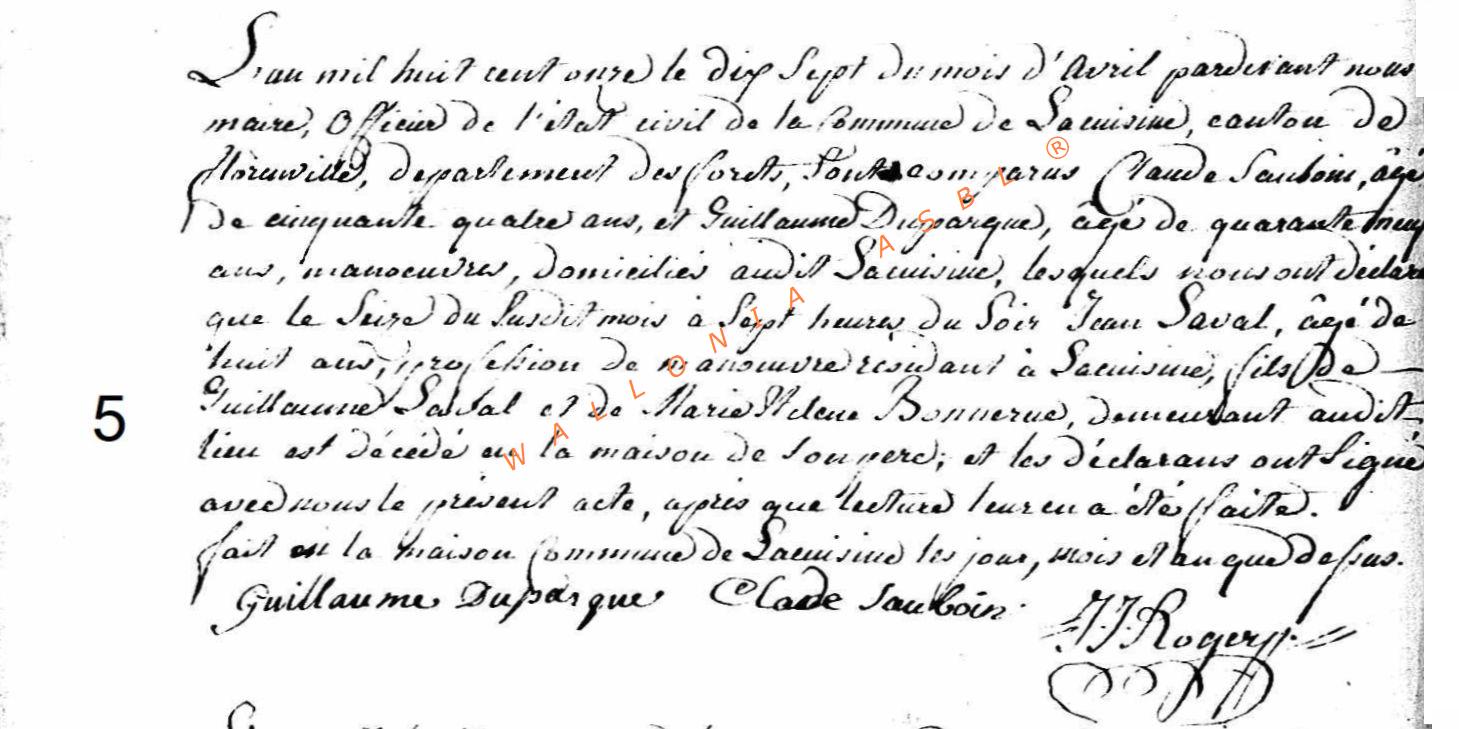 L'an mil huit cent onze le dix Sept du mois d'Avril pardevant nous
maire, Officier de l'état civil de la Commune de Lacuisine, canton de
florenville, departement des forets, Sont comparus Claude Sauboin, âgé
de cinquante quatre ans, et Guillaume Duparque, âgé de quarante neuf
ans, manoeuvres, domiciliés audit Lacuisine, lesquels nous ont déclaré
que le Seize du Susdit mois à Sept heures du Soir Jean Laval, âgé de
huit ans, profession de manouvre résidant à Lacuisine, fils de
5
Guillaume Laval et de Marie Helene Bonnerue, demeurant audit
lieu est décédé en la maison de son pere; et les déclarans ont Signé
avec nous le présent acte, après que lecture leur en a été faite.
fait en la maison Commune de Lacuisine les jour, mois et an que dessus.
Guillaume Duparque Clade Sauboin
J.J. Roger
WALLONIA ASBL ®